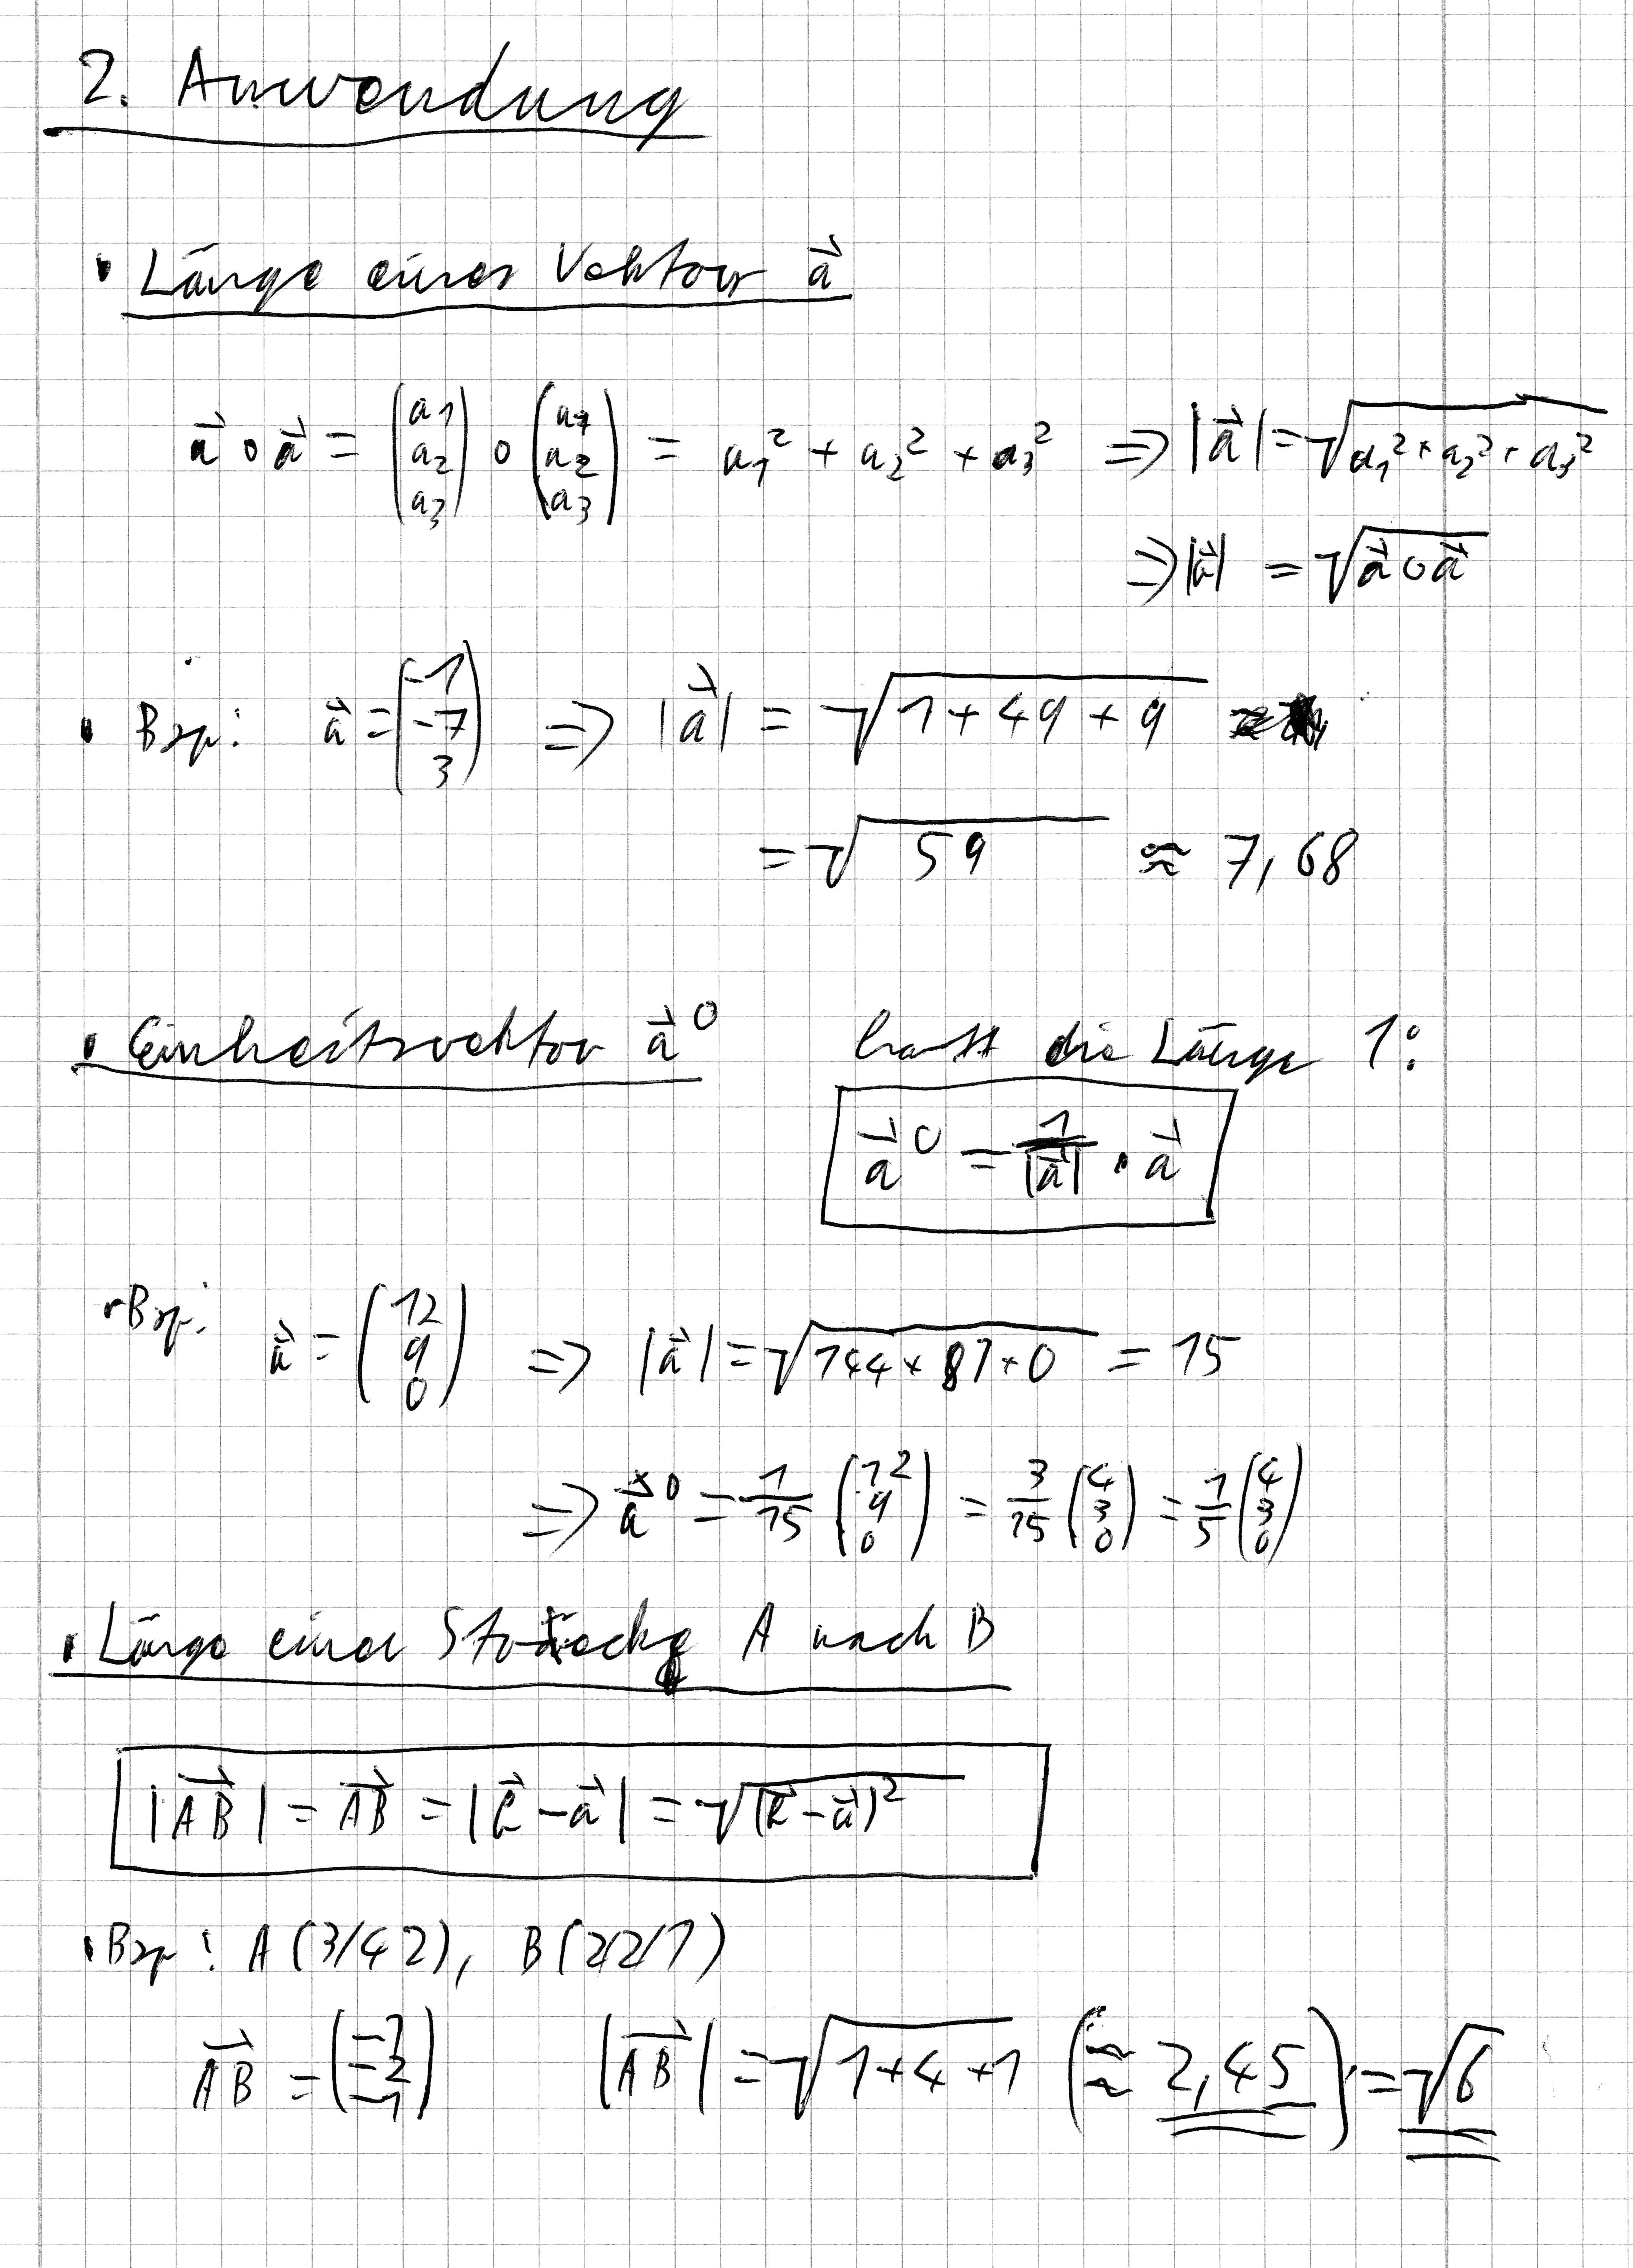 2. Anwendung
• Länge eines Vektors a⃗
a⃗ ∘ a⃗ = (a1 a2 a3) ∘ (a1 a2 a3) = a₁² + a₂² + a₃² ⇒ |a⃗| = √(a₁² + a₂² + a₃²)
⇒ |a⃗| = √(a⃗ ∘ a⃗)
• Bsp: a⃗ = (-1 -7 3) ⇒ |a⃗| = √(1 + 49 + 9)
= √59 ≈ 7,68
• Einheitsvektor a⃗⁰ hat die Länge 1:
a⃗⁰ = 1/|a⃗| · a⃗
• Bsp: a⃗ = (12 9 0) ⇒ |a⃗| = √(144 + 81 + 0) = 15
⇒ a⃗⁰ = 1/15 (12 9 0) = 3/15 (4 3 0) = 1/5 (4 3 0)
• Länge einer Strecke A nach B
|AB⃗| = AB⃗ = |b⃗ - a⃗| = √(b⃗ - a⃗)²
• Bsp: A(3/4 2), B(2/2/1)
AB⃗ = (-1 -2 -1) |AB⃗| = √(1 + 4 + 1) (≈ 2,45) = √6